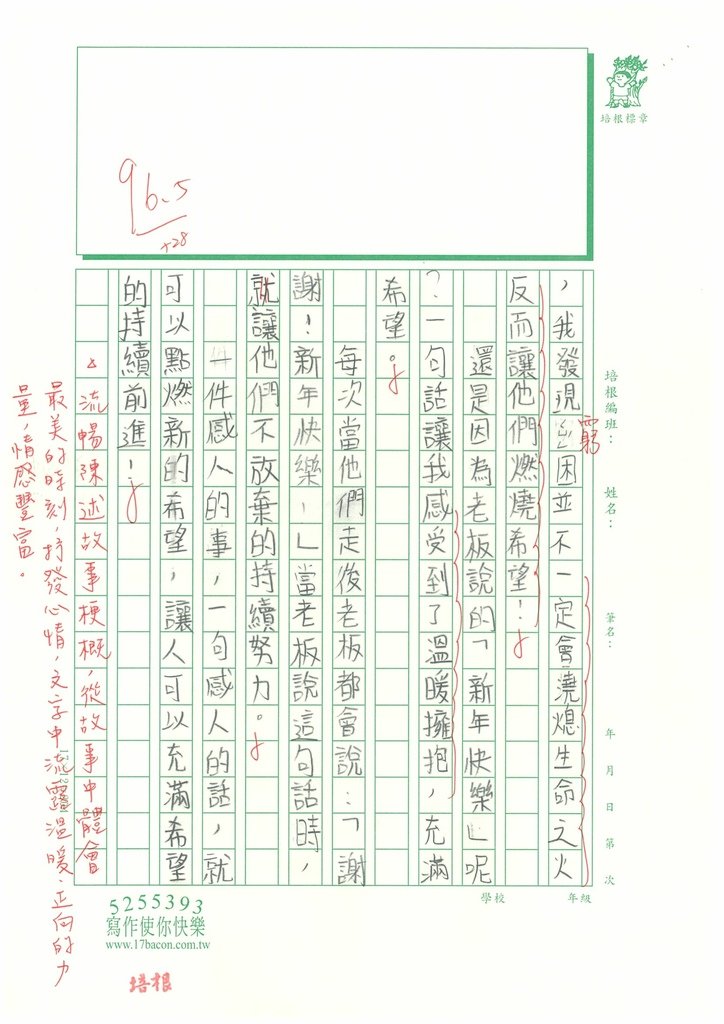 培根標章
培根編班：
姓名：
筆名：
年 月 日 第 次
學校
年級
96.5
+28
，我發現困並不一定會澆熄生命之火
窮
反而讓他們燃燒希望！
還是因為老板說的「新年快樂」呢
？一句話讓我感受到了溫暖擁抱，充滿
希望。
每次當他們走後老板都會說：「謝
謝！新年快樂！」當老板說這句話時，
就讓他們不放棄的持續努力。
一件感人的事，一句感人的話，就
可以點燃新的希望，讓人可以充滿希望
的持續前進！
流暢陳述故事梗概，從故事中體會
最美的時刻，抒發心情，文字中流露溫暖、正向的力
量，情感豐富。
5255393
寫作使你快樂
www.17bacon.com.tw
培根